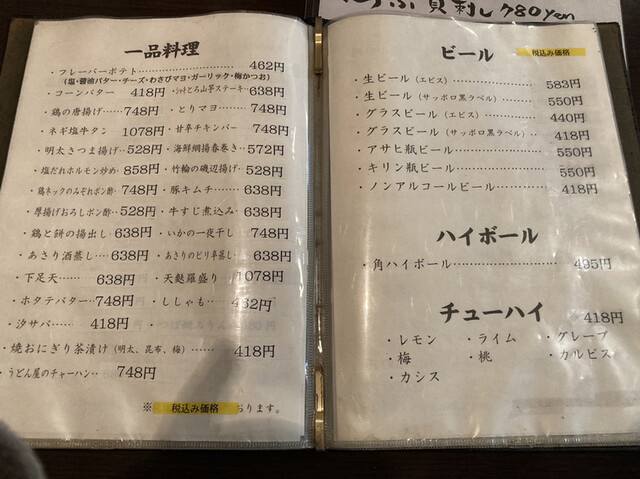 貝刺し 780yen
一品料理
・フレーバーポテト……………462円
(塩・醤油バター・チーズ・わさびマヨ・ガーリック・梅かつお)
・コーンバター 418円 ・シャキとろ山芋ステーキ…638円
・鶏の唐揚げ……748円 ・とりマヨ………748円
・ネギ塩牛タン 1078円 ・甘辛チキンバー 748円
・明太さつま揚げ…528円 ・海鮮網揚春巻き…572円
・塩だれホルモン炒め…858円 ・竹輪の磯辺揚げ…528円
・鶏ネックのみぞれポン酢…748円 ・豚キムチ………638円
・厚揚げおろしポン酢…528円 ・牛すじ煮込み…638円
・鶏と餅の揚出し…638円 ・いかの一夜干し 748円
・あさり酒蒸し…638円 ・あさりのピリ辛蒸し…638円
・下足天………638円 ・天麩羅盛り…1078円
・ホタテバター…748円 ・ししゃも…462円
・汐サバ……418円
・焼おにぎり茶漬け(明太、昆布、梅)……418円
・うどん屋のチャーハン…748円
※ 税込み価格 おります。
ビール
税込み価格
・生ビール(エビス)………………583円
・生ビール(サッポロ黒ラベル)………550円
・グラスビール(エビス)……………440円
・グラスビール(サッポロ黒ラベル)…418円
・アサヒ瓶ビール…………………550円
・キリン瓶ビール…………………550円
・ノンアルコールビール…………418円
ハイボール
・角ハイボール……………………495円
チューハイ 418円
・レモン ・ライム ・グレープ
・梅 ・桃 ・カルピス
・カシス